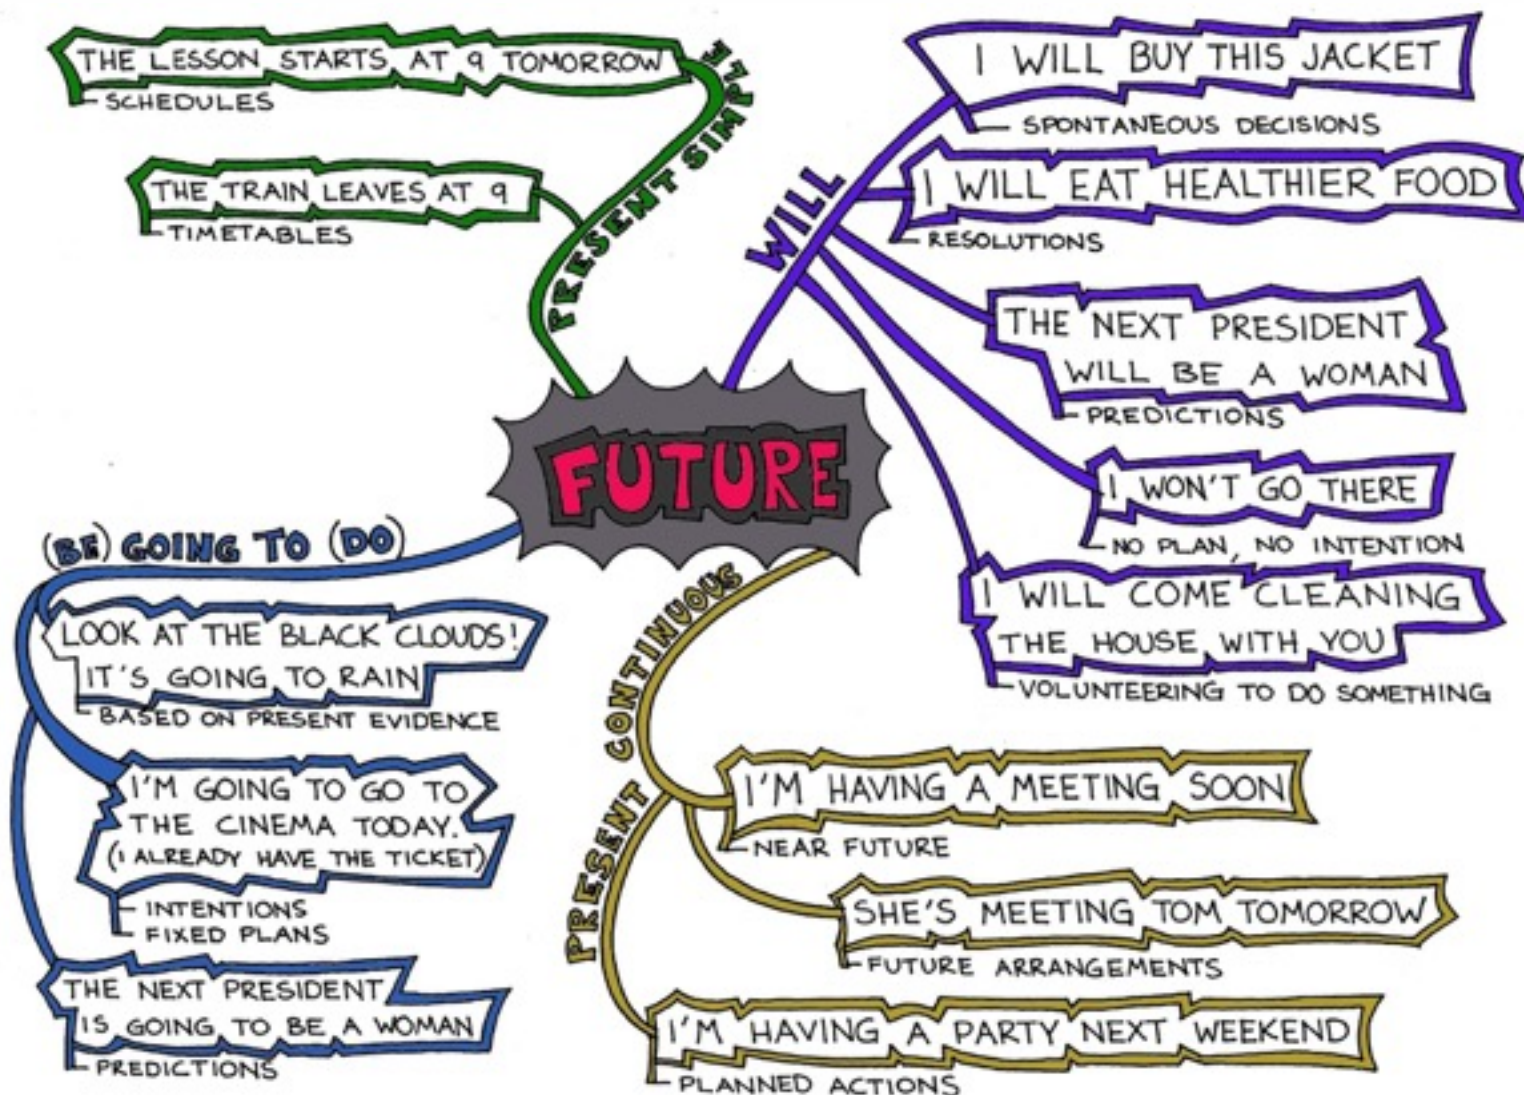 FUTURE
PRESENT SIMPLE
THE LESSON STARTS AT 9 TOMORROW
SCHEDULES
THE TRAIN LEAVES AT 9
TIMETABLES
WILL
I WILL BUY THIS JACKET
SPONTANEOUS DECISIONS
I WILL EAT HEALTHIER FOOD
RESOLUTIONS
THE NEXT PRESIDENT
WILL BE A WOMAN
PREDICTIONS
I WON'T GO THERE
NO PLAN, NO INTENTION
I WILL COME CLEANING
THE HOUSE WITH YOU
VOLUNTEERING TO DO SOMETHING
(BE) GOING TO (DO)
LOOK AT THE BLACK CLOUDS!
IT'S GOING TO RAIN
BASED ON PRESENT EVIDENCE
I'M GOING TO GO TO
THE CINEMA TODAY.
(I ALREADY HAVE THE TICKET)
INTENTIONS
FIXED PLANS
THE NEXT PRESIDENT
IS GOING TO BE A WOMAN
PREDICTIONS
PRESENT CONTINUOUS
I'M HAVING A MEETING SOON
NEAR FUTURE
SHE'S MEETING TOM TOMORROW
FUTURE ARRANGEMENTS
I'M HAVING A PARTY NEXT WEEKEND
PLANNED ACTIONS